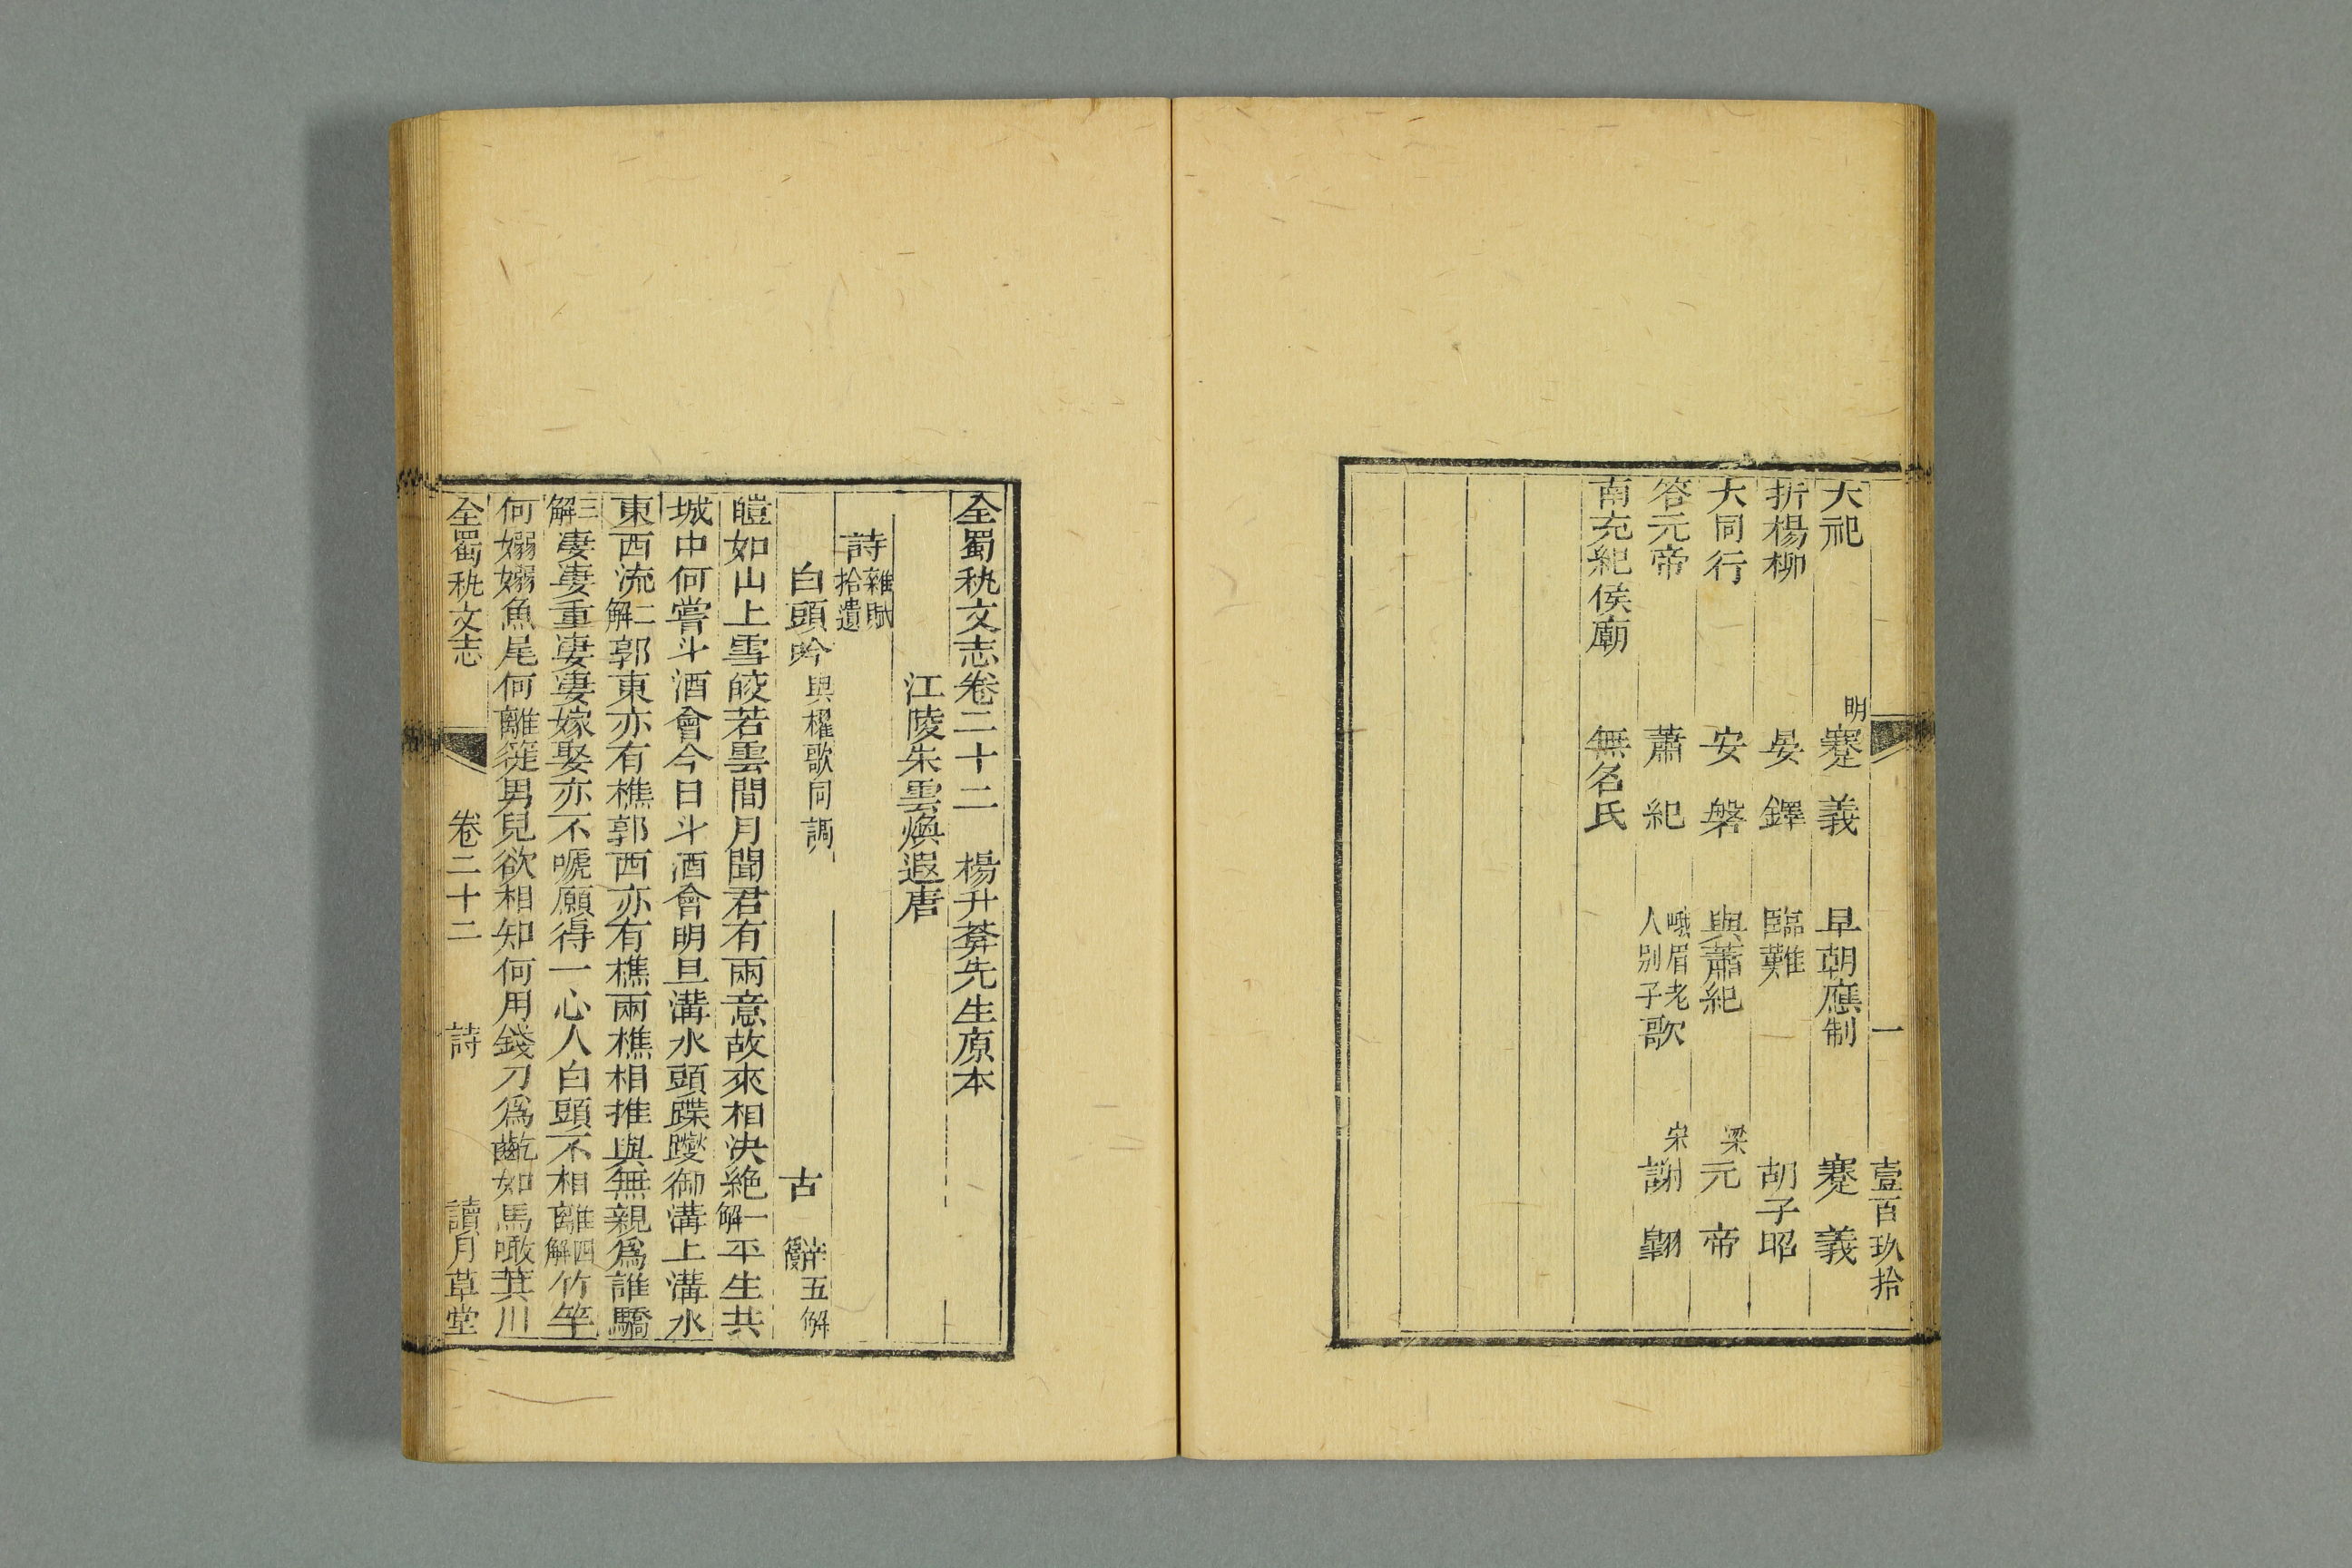 一 壹百玖拾
大祀 明蹇義 早朝應制 蹇義
折楊柳 晏鐸 臨難 胡子昭
大同行 安磐 與蕭紀 梁元帝
答元帝 蕭紀 峨眉老人別子歌 宋謝翺
南充紀侯廟 無名氏
全蜀秇文志卷二十二 楊升菴先生原本
江陵朱雲煥遐唐
詩雜賦拾遺
白頭吟與櫂歌同調 古辭五解
皚如山上雪皎若雲間月聞君有兩意故來相決絶一解平生共
城中何嘗斗酒會今日斗酒會明旦溝水頭蹀躞御溝上溝水
東西流二解郭東亦有樵郭西亦有樵兩樵相推與無親爲誰驕
三解淒淒重淒淒嫁娶亦不嗁願得一心人白頭不相離四解竹竿
何嫋嫋魚尾何離簁男兒欲相知何用錢刀爲齕如馬噉萁川
全蜀秇文志 卷二十二 詩 讀月草堂